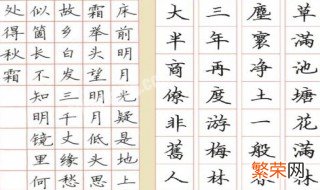 床前明月光疑是地上
霜举头望明月低头思
故乡白发三千丈缘愁
似箇长不知明镜里何
处得秋霜
草滿池塘花滿
塵寰净土一般
三年再度游梅林
大半商僚非舊人
繁荣网